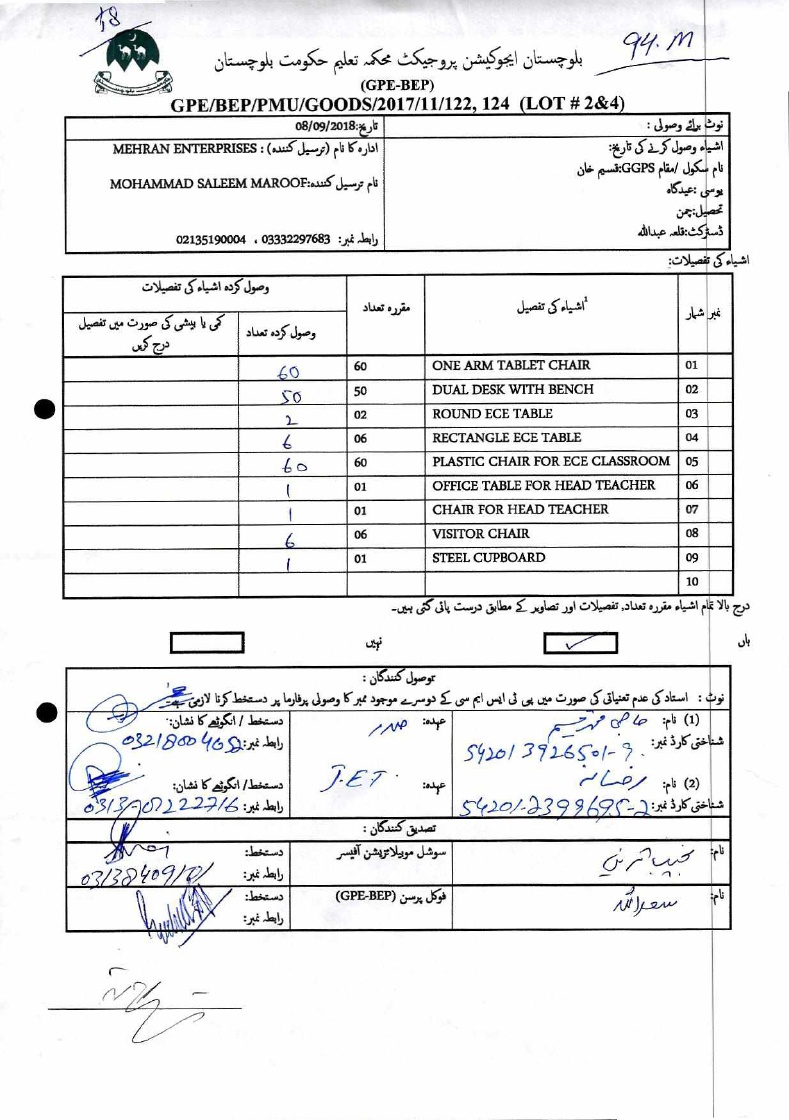 18
94.M
بلوچستان ایجوکیشن پروجیکٹ محکمہ تعلیم حکومت بلوچستان
(GPE-BEP)
GPE/BEP/PMU/GOODS/2017/11/122, 124 (LOT # 2&4)
نوٹ برائے وصولی :
تاریخ:08/09/2018
اشیاء وصول کرنے کی تاریخ:
نام سکول /مقام GGPS:قسیم خان
یوسی :عیدگاہ
تحصیل:چمن
ڈسٹرکٹ:قلعہ عبداللہ
ادارہ کا نام (ترسیل کنندہ) : MEHRAN ENTERPRISES
نام ترسیل کنندہ:MOHAMMAD SALEEM MAROOF
رابطہ نمبر: 03332297683 ، 02135190004
اشیاء کی تفصیلات:
نمبر شمار اشیاء کی تفصیل1 مقررہ تعداد وصول کردہ اشیاء کی تفصیلات
وصول کردہ تعداد کمی یا بیشی کی صورت میں تفصیل درج کریں
01 ONE ARM TABLET CHAIR 60 60
02 DUAL DESK WITH BENCH 50 50
03 ROUND ECE TABLE 02 2
04 RECTANGLE ECE TABLE 06 6
05 PLASTIC CHAIR FOR ECE CLASSROOM 60 60
06 OFFICE TABLE FOR HEAD TEACHER 01 1
07 CHAIR FOR HEAD TEACHER 01 1
08 VISITOR CHAIR 06 6
09 STEEL CUPBOARD 01 1
10
درج بالا تمام اشیاء مقررہ تعداد، تفصیلات اور تصاویر کے مطابق درست پائی گئی ہیں۔
ہاں ✓ نہیں
توصول کنندگان :
نوٹ : استاد کی عدم تعیناتی کی صورت میں پی ٹی ایس ایم سی کے دوسرے موجود ممبر کا وصولی پرفارما پر دستخط کرنا لازمی ہے
(1) نام: حاجی محمد قسیم عہدہ: صدر دستخط / انگوٹھے کا نشان:
شناختی کارڈ نمبر: 54201 3926501-9 رابطہ نمبر:
(2) نام: رخسانہ عہدہ: J.E.T دستخط/ انگوٹھے کا نشان:
شناختی کارڈ نمبر: 54201-2399695-2 رابطہ نمبر:
تصدیق کنندگان :
نام: سوشل موبیلائزیشن آفیسر دستخط:
رابطہ نمبر:
نام: سعداللہ فوکل پرسن (GPE-BEP) دستخط:
رابطہ نمبر: